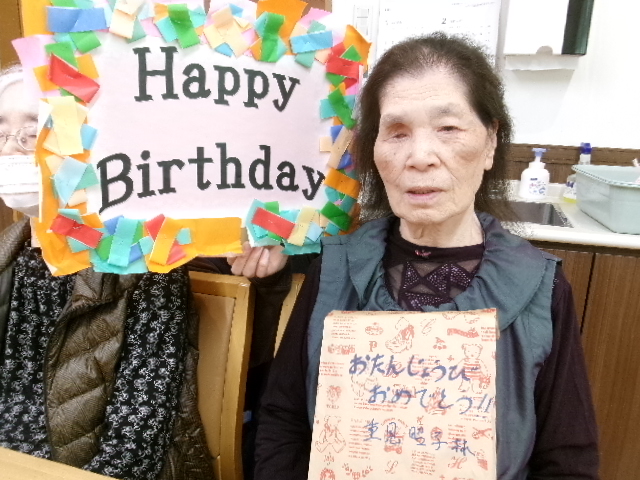 Happy
Birthday
おたんじょうび
おめでとう!!
昭子様